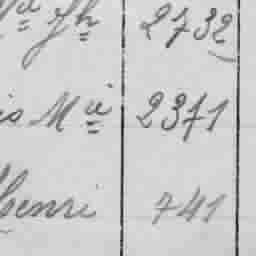 Jh 2732
is Mie 2371
Henri 741